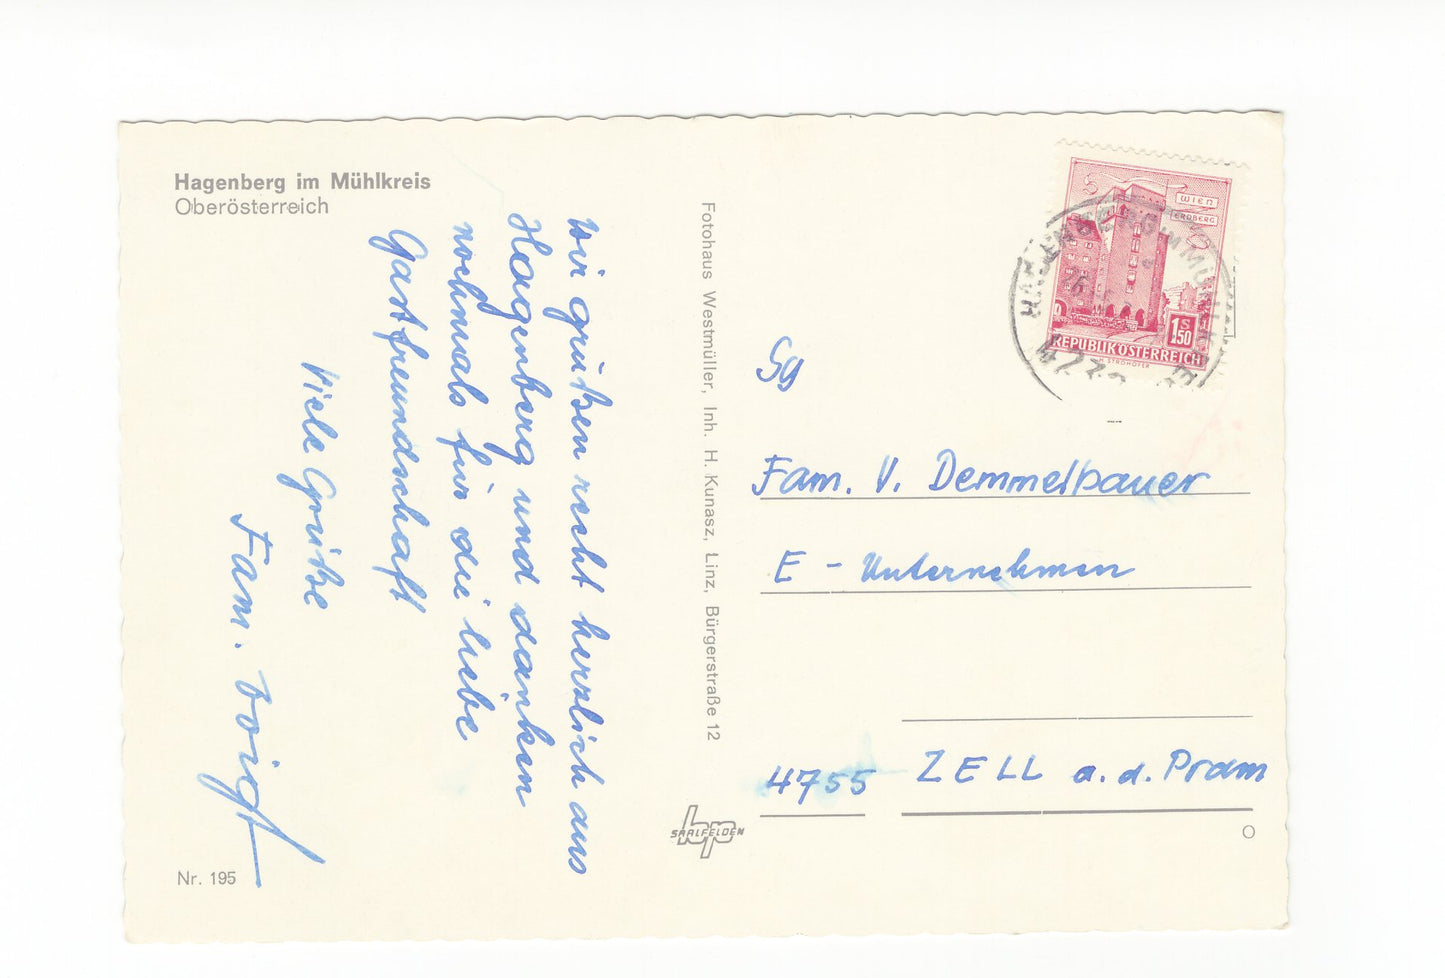 Hagenberg im Mühlkreis
Oberösterreich
wir grüßen recht herzlich aus
Hagenberg und danken
nochmals für die liebe
Gastfreundschaft
Viele Grüße
Fam. Voigt
Nr. 195
Fotohaus Westmüller, Inh. H. Kunasz, Linz, Bürgerstraße 12
SAALFELDEN
WIEN
ERDBERG
S
1.50
REPUBLIK ÖSTERREICH
H. STROHOFER
HAGENBERG IM MÜHLKREIS
Sg
Fam. V. Demmelbauer
E - Unternehmen
4755 ZELL a. d. Pram